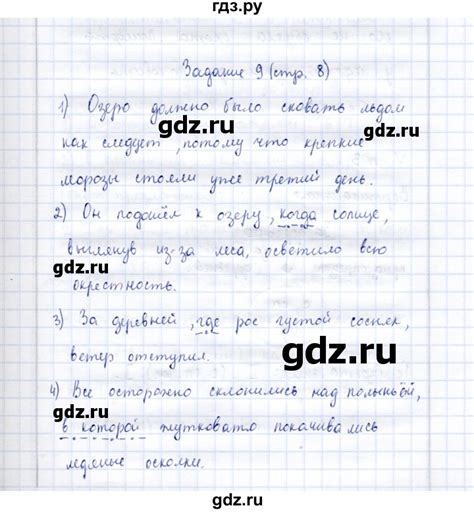 гдз.ру
Задание 9 (стр. 8)
1) Озеро должно было сковать льдом
gdz.ru
как следует, потому что крепкие
gdz.ru
морозы стояли уже третий день.
2) Он подошёл к озеру, когда солнце,
gdz.ru
выглянув из-за леса, осветило всю
gdz.ru
окрестность.
3) За деревней, где рос густой сосняк,
gdz.ru
gdz.ru
ветер отступил.
4) Все осторожно склонились над полыньёй,
gdz.ru
в которой жутковато покачивались
gdz.ru
ледяные осколки.
gdz.ru